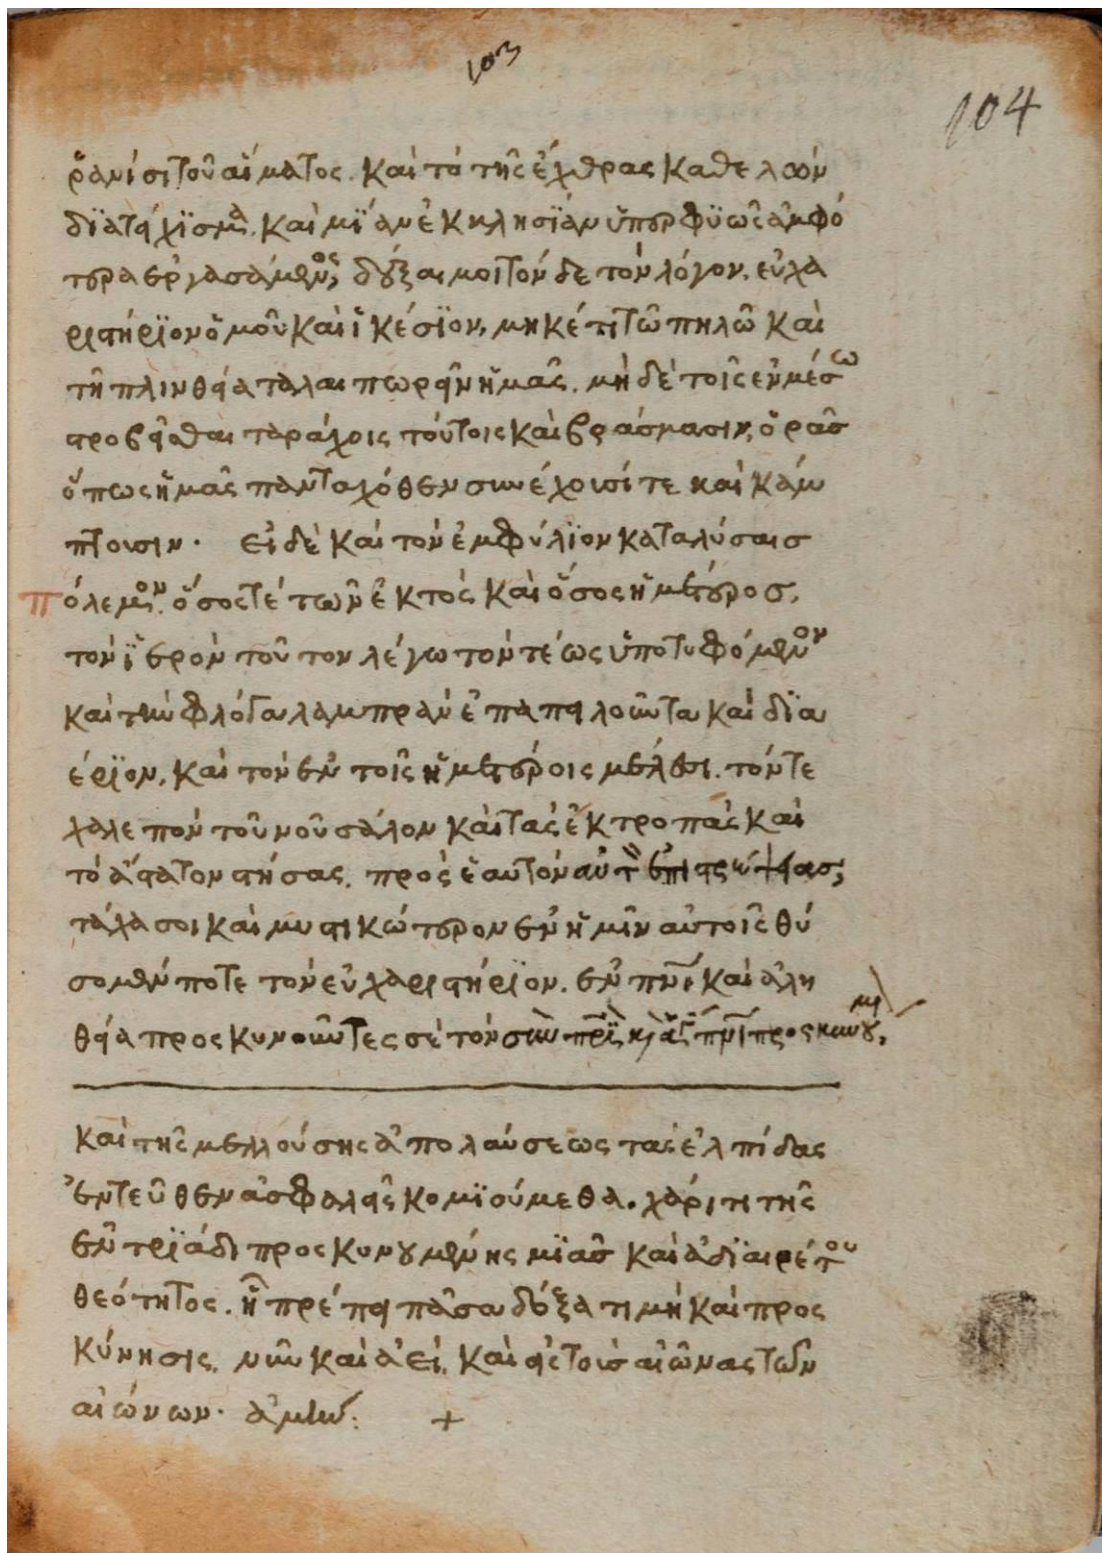 103
104
ῥανίσι τοῦ αἵματος. καὶ τὸ τῆς ἔχθρας καθελὼν
διατείχϊσμα. καὶ μΐαν ἐκκλησΐαν ὑπερφϋῶς ἀμφό
τερα ἐργασάμενος, δέξαι μοι τόνδε τὸν λόγον, εὐχα
ριστήρϊον ὁμοῦ καὶ ἱκέσϊον, μηκέτι τῶ πηλῶ καὶ
τῆ πλινθεία ταλαιπωρεῖν ἡμᾶς. μὴ δὲ τοῖς ἐν μέσω
στροβεῖσθαι ταράχοις τούτοις καὶ βράσμασιν, ὁρᾶς
ὅπως ἡμᾶς πανταχόθεν συνέχουσί τε καὶ κάμ
πτουσιν. εἰ δὲ καὶ τὸν ἐμφύλϊον καταλύσαις
πόλεμον, ὅσος τὲ τῶν ἐκτὸς καὶ ὅσος ἡμέτερος,
τὸν ϊερὸν τοῦτον λέγω τὸν τέως ὑποτυφόμενον
καὶ τὴν φλόγα λαμπρὰν ἐπαπειλοῦντα καὶ δϊα
έρϊον, καὶ τὸν ἐν τοῖς ἡμετέροις μέλεσι. τόν τε
χαλεπὸν τοῦ νοῦ σάλον καὶ τὰς ἐκτροπὰς καὶ
τὸ ἄστατον στήσας. πρὸς ἑαυτὸν αὐτὸν ἐπιστρέψας,
τάχα σοι καὶ μυστικώτερον ἐν ἡμῖν αὐτοῖς θύ
σομέν ποτε τὸν εὐχαριστήρϊον. ἐν πνι καὶ ἀλη
θεία προσκυνοῦντες σὲ τὸν σὺν πρϊ κ ἁγ πνι προσκυνούμ,
καὶ τῆς μελλούσης ἀπολαύσεως τὰς ἐλπίδας
ἐντεῦθεν ἀσφαλεῖς κομϊούμεθα. χάριτι τῆς
ἐν τρϊάδι προσκυνουμένης μϊᾶς καὶ ἀδϊαιρέτου
θεότητος. ἧ πρέπει πᾶσα δόξα τιμὴ καὶ προσ
κύνησις, νῦν καὶ ἀεὶ, καὶ εἰς τοὺς αἰῶνας τῶν
αἰώνων. ἀμήν: +